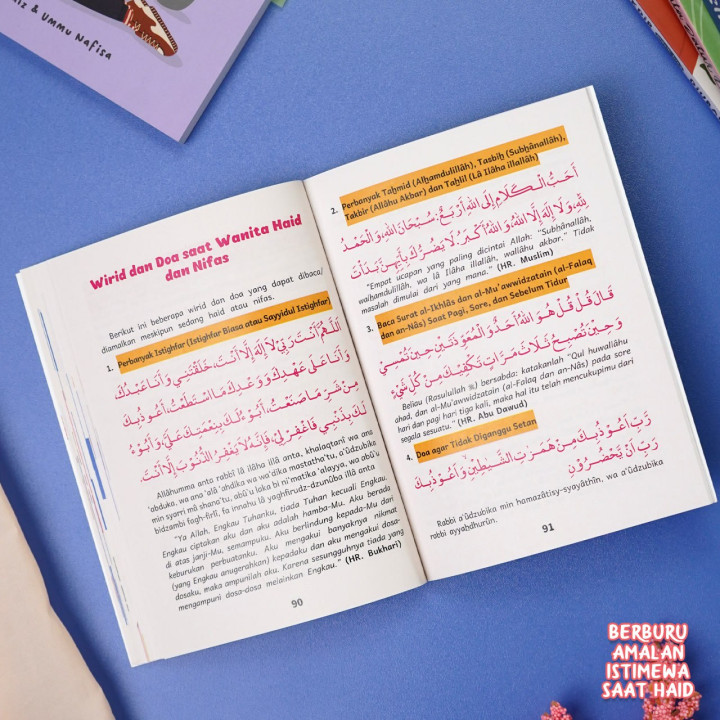 iz & Ummu Nafisa
Wirid dan Doa saat Wanita Haid
dan Nifas
Berikut ini beberapa wirid dan doa yang dapat dibaca/
diamalkan meskipun sedang haid atau nifas.
1. Perbanyak Istighfar (Istighfar Biasa atau Sayyidul Istighfar)
اَللّٰهُمَّ أَنْتَ رَبِّيْ لَا إِلٰهَ إِلَّا أَنْتَ، خَلَقْتَنِيْ وَأَنَا عَبْدُكَ
وَأَنَا عَلَى عَهْدِكَ وَوَعْدِكَ مَا اسْتَطَعْتُ، أَعُوْذُ بِكَ
مِنْ شَرِّ مَا صَنَعْتُ، أَبُوْءُ لَكَ بِنِعْمَتِكَ عَلَيَّ، وَأَبُوْءُ
لَكَ بِذَنْبِيْ فَاغْفِرْ لِيْ، فَإِنَّهُ لَا يَغْفِرُ الذُّنُوْبَ إِلَّا أَنْتَ.
Allâhumma anta rabbî lâ ilâha illâ anta, khalaqtanî wa ana
'abduka, wa ana 'alâ 'ahdika wa wa'dika mastatha'tu, a'ûdzubika
min syarri mâ shana'tu, abû'u laka bi ni'matika 'alayya, wa abû'u
bidzambi fagh-firlî, fa innahu lâ yaghfirudz-dzunûba illâ anta
"Ya Allah, Engkau Tuhanku, tiada Tuhan kecuali Engkau.
Engkau ciptakan aku dan aku adalah hamba-Mu. Aku berada
di atas janji-Mu, semampuku. Aku berlindung kepada-Mu dari
keburukan perbuatanku. Aku mengakui banyaknya nikmat
(yang Engkau anugerahkan) kepadaku dan aku mengakui dosa-
dosaku, maka ampunilah aku. Karena sesungguhnya tiada yang
mengampuni dosa-dosa melainkan Engkau." (HR. Bukhari)
90
2. Perbanyak Taḥmid (Alḥamdulillâh), Tasbiḥ (Subḥânallâh),
Takbir (Allâhu Akbar) dan Taḥlil (Lâ Ilâha illallâh)
أَحَبُّ الْكَلَامِ إِلَى اللهِ أَرْبَعٌ: سُبْحَانَ اللهِ، وَالْحَمْدُ
لِلّٰهِ، وَلَا إِلٰهَ إِلَّا اللهُ، وَاللهُ أَكْبَرُ، لَا يَضُرُّكَ بِأَيِّهِنَّ بَدَأْتَ
"Empat ucapan yang paling dicintai Allah: "Subḥânallâh,
walḥamdulillâh, wa lâ Ilâha illallâh, wallâhu akbar." Tidak
masalah dimulai dari yang mana." (HR. Muslim)
3. Baca Surat al-Ikhlâs dan al-Mu'awwidzatain (al-Falaq
dan an-Nâs) Saat Pagi, Sore, dan Sebelum Tidur
قَالَ قُلْ قُلْ هُوَ اللهُ أَحَدٌ وَالْمُعَوِّذَتَيْنِ حِيْنَ تُمْسِيْ
وَحِيْنَ تُصْبِحُ ثَلَاثَ مَرَّاتٍ تَكْفِيْكَ مِنْ كُلِّ شَيْءٍ
Beliau (Rasulullah ﷺ) bersabda: katakanlah "Qul huwallâhu
ahad, dan al-Mu'awwidzatain (al-Falaq dan an-Nâs) pada sore
hari dan pagi hari tiga kali, maka hal itu telah mencukupimu dari
segala sesuatu." (HR. Abu Dawud)
4. Doa agar Tidak Diganggu Setan
رَبِّ أَعُوْذُ بِكَ مِنْ هَمَزَتِ الشَّيٰطِيْنِ وَأَعُوْذُ بِكَ
رَبِّ أَنْ يَّحْضُرُوْنِ
Rabbi a'ûdzubika min hamazâtisy-syayâthîn, wa a'ûdzubika
rabbi ayyaḥdhurûn.
91
BERBURU
AMALAN
ISTIMEWA
SAAT HAID